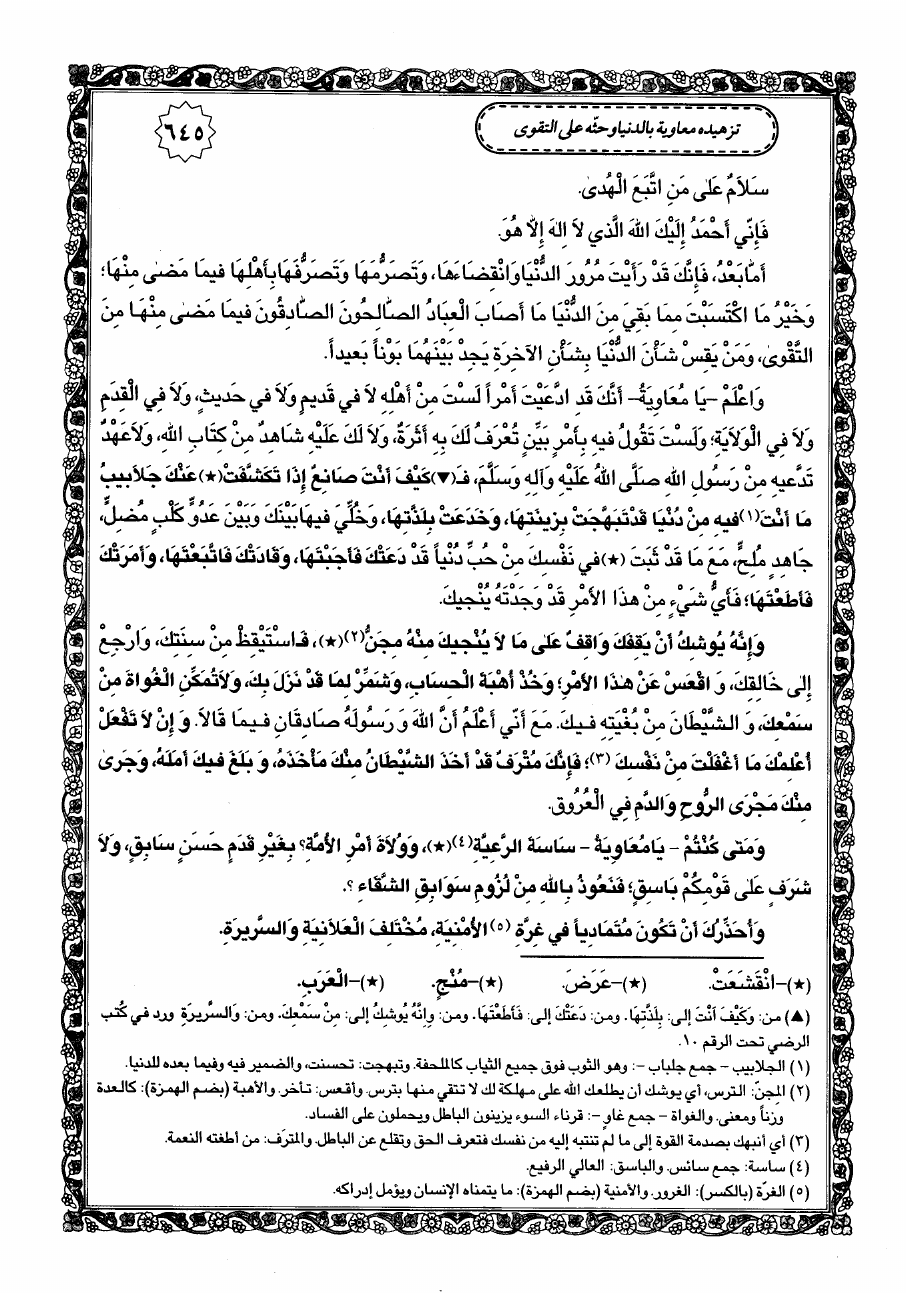 تزهيده معاوية بالدنيا وحثّه على التقوى
٦٤٥
سَلَامٌ عَلىٰ مَنِ اتَّبَعَ الْهُدىٰ.
فَإِنّي أَحْمَدُ إِلَيْكَ اللهَ الَّذي لَا إِلٰهَ إِلَّا هُوَ.
أَمّٰا بَعْدُ، فَإِنَّكَ قَدْ رَأَيْتَ مُرُورَ الدُّنْيَا وَانْقِضَاءَهَا، وَتَصَرُّمَهَا وَتَصَرُّفَهَا بِأَهْلِهَا فيمَا مَضىٰ مِنْهَا؛
وَخَيْرُ مَا اكْتَسَبْتَ مِمّا بَقِيَ مِنَ الدُّنْيَا مَا أَصَابَ الْعِبَادُ الصّالِحُونَ الصّادِقُونَ فيمَا مَضىٰ مِنْهَا مِنَ
التَّقْوىٰ، وَمَنْ يَقِسْ شَأْنَ الدُّنْيَا بِشَأْنِ الآخِرَةِ يَجِدْ بَيْنَهُمَا بَوْناً بَعيداً.
وَاعْلَمْ –يَا مُعَاوِيَةُ– أَنَّكَ قَدِ ادَّعَيْتَ أَمْراً لَسْتَ مِنْ أَهْلِهِ لَا في قَديمٍ وَلَا في حَديثٍ، وَلَا فِي الْقِدَمِ
وَلَا فِي الْوَلَايَةِ؛ وَلَسْتَ تَقُولُ فيهِ بِأَمْرٍ بَيِّنٍ تُعْرَفُ لَكَ بِهِ أَثَرَةٌ، وَلَا لَكَ عَلَيْهِ شَاهِدٌ مِنْ كِتَابِ اللهِ، وَلَا عَهْدٌ
تَدَّعيهِ مِنْ رَسُولِ اللهِ صَلَّى اللهُ عَلَيْهِ وَآلِهِ وَسَلَّمَ، فَـ(▼)كَيْفَ أَنْتَ صَانِعٌ إِذَا تَكَشَّفَتْ(★) عَنْكَ جَلَابيبُ
مَا أَنْتَ(١) فيهِ مِنْ دُنْيَا قَدْ تَبَهَّجَتْ بِزينَتِهَا، وَخَدَعَتْ بِلَذَّتِهَا، وَخُلِّيَ فيهَا بَيْنَكَ وَبَيْنَ عَدُوٍّ كَلْبٍ مُضِلٍّ،
جَاهِدٍ مُلِحٍّ، مَعَ مَا قَدْ ثَبَتَ (★) في نَفْسِكَ مِنْ حُبِّ دُنْيَاً قَدْ دَعَتْكَ فَأَجَبْتَهَا، وَقَادَتْكَ فَاتَّبَعْتَهَا، وَأَمَرَتْكَ
فَأَطَعْتَهَا؛ فَأَيُّ شَيْءٍ مِنْ هٰذَا الأَمْرِ قَدْ وَجَدْتَهُ يُنْجيكَ.
وَإِنَّهُ يُوشِكُ أَنْ يَقِفَكَ وَاقِفٌ عَلىٰ مَا لَا يُنْجيكَ مِنْهُ مِجَنٌّ(٢)(★)، فَاسْتَيْقِظْ مِنْ سِنَتِكَ، وَارْجِعْ
إِلىٰ خَالِقِكَ، وَ اقْعَسْ عَنْ هٰذَا الأَمْرِ؛ وَخُذْ أُهْبَةَ الْحِسَابِ، وَشَمِّرْ لِمَا قَدْ نَزَلَ بِكَ، وَلَا تُمَكِّنِ الْغُوَاةَ مِنْ
سَمْعِكَ، وَ الشَّيْطَانَ مِنْ بُغْيَتِهِ فيكَ. مَعَ أَنّي أَعْلَمُ أَنَّ اللهَ وَ رَسُولَهُ صَادِقَانِ فيمَا قَالَا. وَ إِنْ لَا تَفْعَلْ
أُعْلِمْكَ مَا أَغْفَلْتَ مِنْ نَفْسِكَ (٣)؛ فَإِنَّكَ مُتْرَفٌ قَدْ أَخَذَ الشَّيْطَانُ مِنْكَ مَأْخَذَهُ، وَ بَلَغَ فيكَ أَمَلَهُ، وَ جَرىٰ
مِنْكَ مَجْرَى الرُّوحِ وَالدَّمِ فِي الْعُرُوقِ.
وَمَتىٰ كُنْتُمْ – يَا مُعَاوِيَةُ – سَاسَةَ الرَّعِيَّةِ(٤)(★)، وَوُلَاةَ أَمْرِ الأُمَّةِ؟ بِغَيْرِ قَدَمٍ حَسَنٍ سَابِقٍ، وَلَا
شَرَفٍ عَلىٰ قَوْمِكُمْ بَاسِقٍ؛ فَنَعُوذُ بِاللهِ مِنْ لُزُومِ سَوَابِقِ الشَّقَاءِ ؟.
وَأُحَذِّرُكَ أَنْ تَكُونَ مُتَمَادِياً في غِرَّةِ (٥) الأُمْنِيَةِ، مُخْتَلِفَ الْعَلَانِيَةِ وَالسَّريرَةِ.
(★)–انْقَشَعَتْ. (★)–عَرَضَ. (★)–مُنْجٍ. (★)–الْعَرَبِ.
(▲) من: وَكَيْفَ أَنْتَ إلى: بِلَذَّتِهَا. ومن: دَعَتْكَ إلى: فَأَطَعْتَهَا. ومن: وَإِنَّهُ يُوشِكُ إلى: مِنْ سَمْعِكَ. ومن: وَالسَّريرَةِ ورد في كتب
الرضي تحت الرقم ١٠.
(١) الجلابيب – جمع جلباب –: وهو الثوب فوق جميع الثياب كالملحفة. وتبهجت: تحسنت، والضمير فيه وفيما بعده للدنيا.
(٢) المِجنّ: الترس، أي يوشك أن يطلعك الله على مهلكة لك لا تتقي منها بترس. وأقعس: تأخر. والأهبة (بضم الهمزة): كالعدة
وزناً ومعنى. والغواة – جمع غاوٍ –: قرناء السوء يزينون الباطل ويحملون على الفساد.
(٣) أي أنبهك بصدمة القوة إلى ما لم تنتبه إليه من نفسك فتعرف الحق وتقلع عن الباطل. والمترَف: من أطغته النعمة.
(٤) ساسة: جمع سائس. والباسق: العالي الرفيع.
(٥) الغرّة (بالكسر): الغرور. والأمنية (بضم الهمزة): ما يتمناه الإنسان ويؤمل إدراكه.